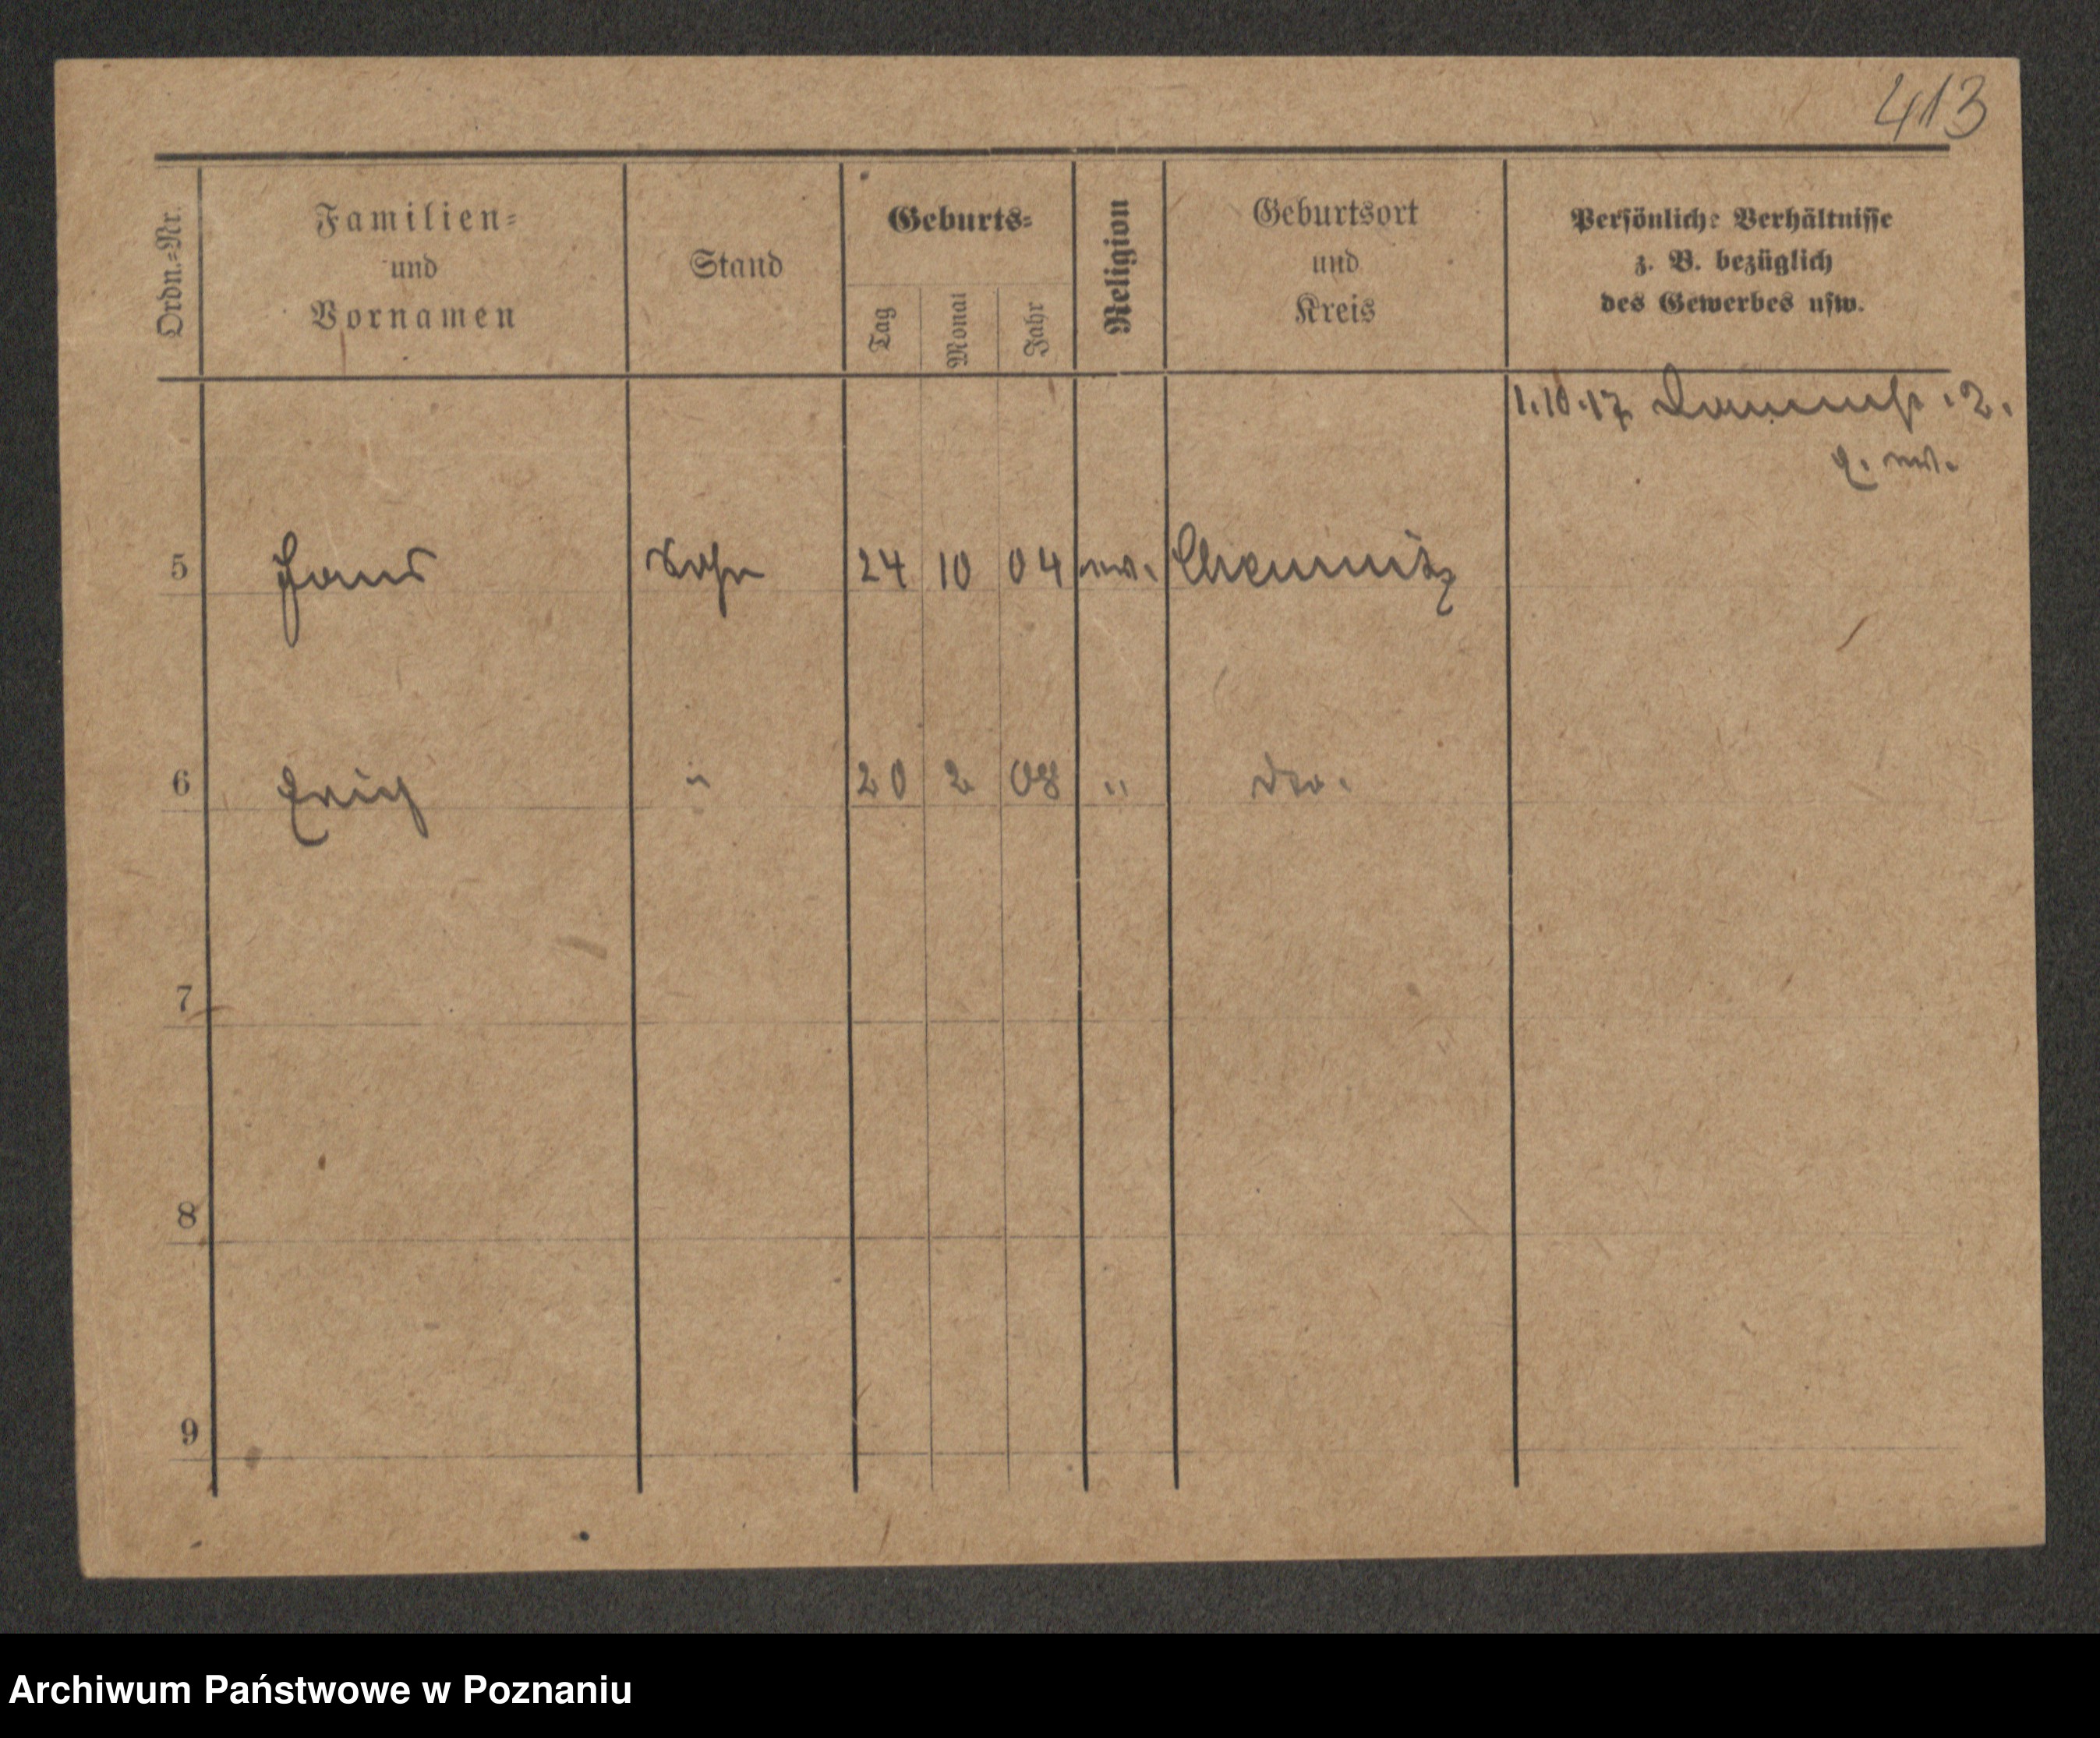 413
Ordn.-Nr. Familien- und Vornamen Stand Geburts- Tag Monat Jahr Religion Geburtsort und Kreis Persönliche Verhältnisse z. B. bezüglich des Gewerbes usw.
1.10.17 2.
5 Hans Sohn 24 10 04 ev. Chemnitz
6 Erich " 20 2 08 " dto.
7
8
9
Archiwum Państwowe w Poznaniu